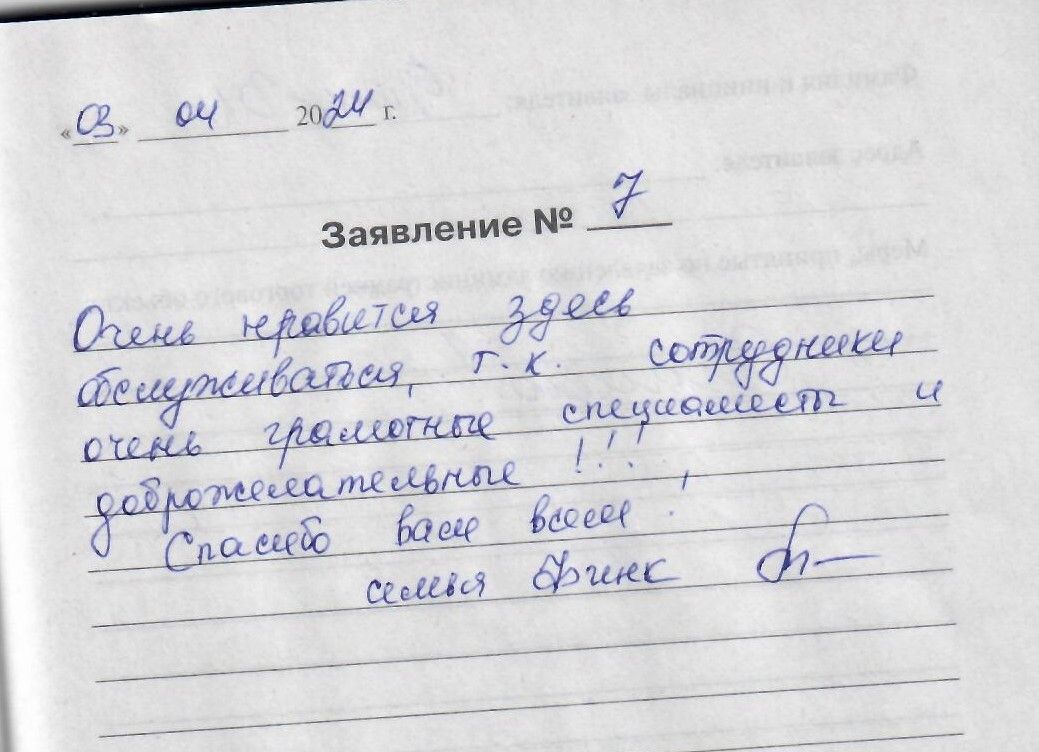 «03» 04 2024 г.
Заявление № 7
Очень нравится здесь
обслуживаться, т.к. сотрудники
очень грамотные специалисты и
доброжелательные !!!
Спасибо вам всем!
семья Финк